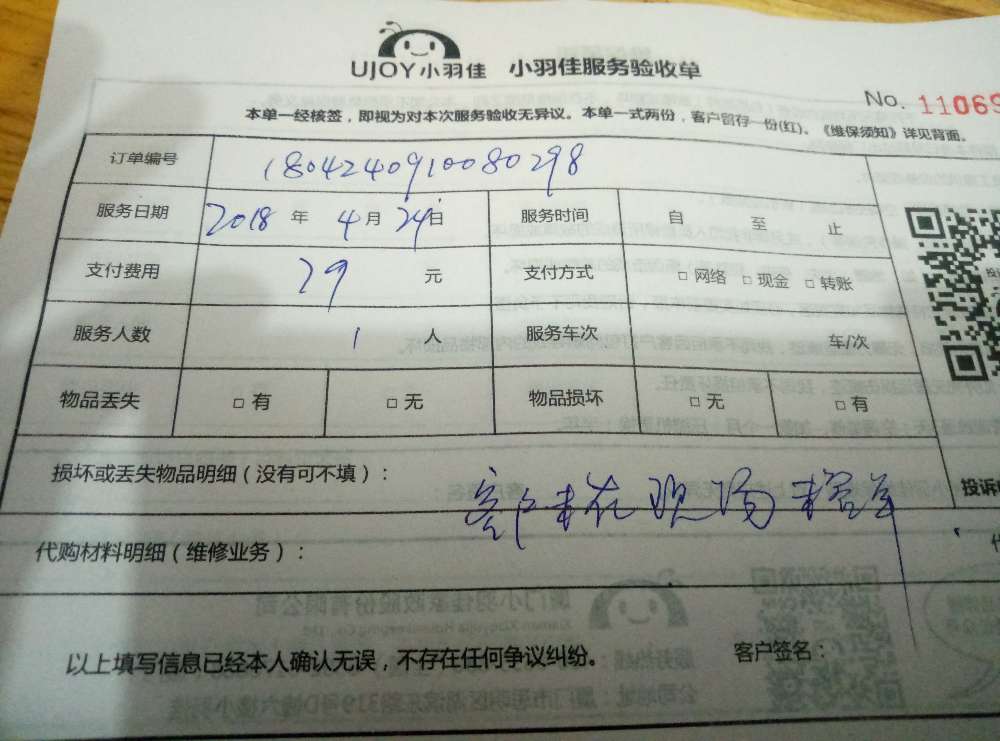 UJOY小羽佳 小羽佳服务验收单
No. 11069
本单一经核签，即视为对本次服务验收无异议。本单一式两份，客户留存一份(红)。《维保须知》详见背面。
订单编号 1804240910080298
服务日期 2018 年 4 月 24 日 服务时间 自 至 止
支付费用 29 元 支付方式 □ 网络 □ 现金 □ 转账
服务人数 1 人 服务车次 车/次
物品丢失 □ 有 □ 无 物品损坏 □ 无 □ 有
损坏或丢失物品明细（没有可不填）：
客户未在现场 未签单
投诉
代购材料明细（维修业务）：
以上填写信息已经本人确认无误，不存在任何争议纠纷。 客户签名：